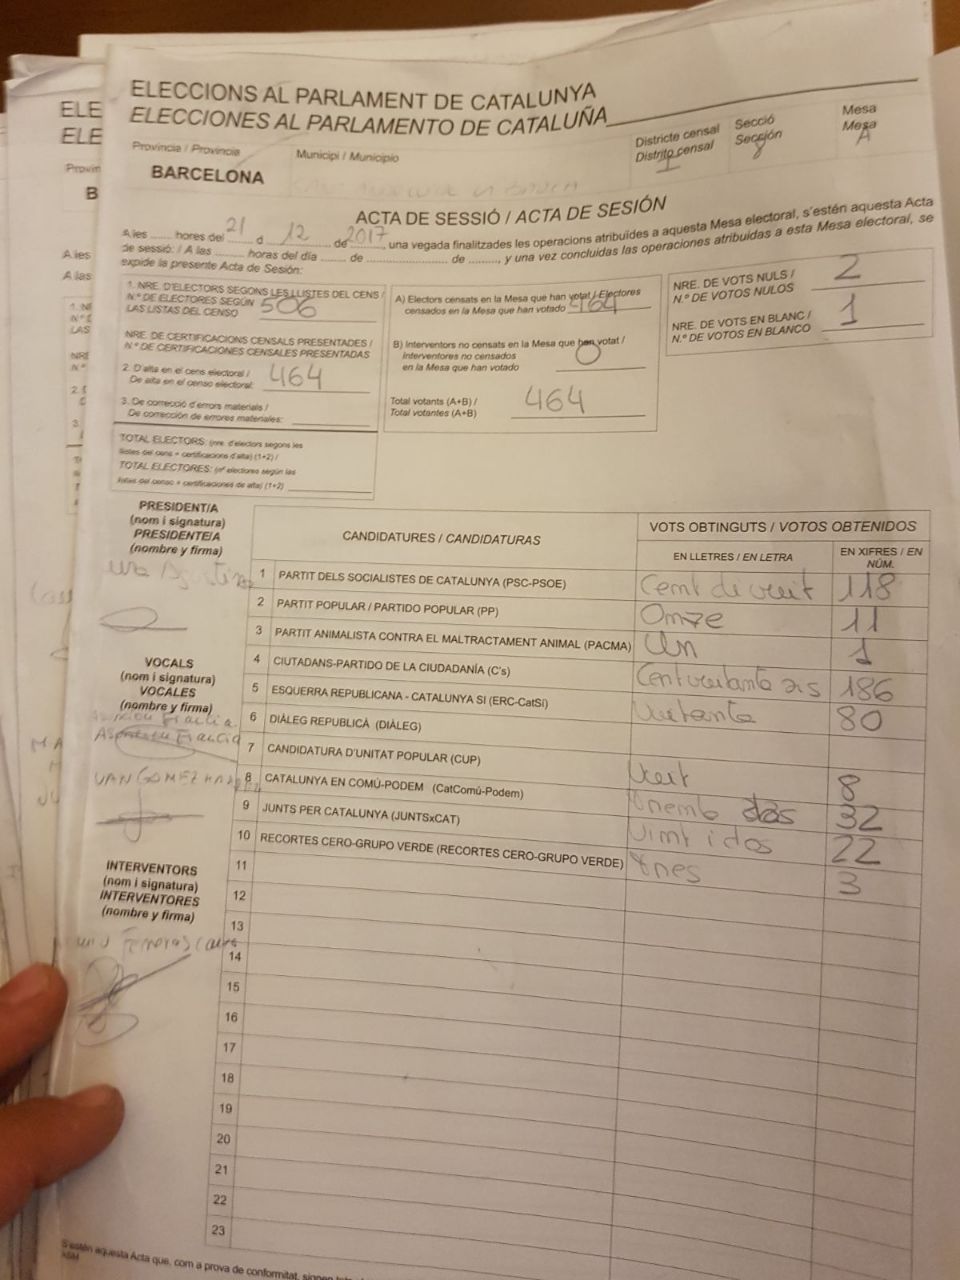 ELECCIONS AL PARLAMENT DE CATALUNYA
ELECCIONES AL PARLAMENTO DE CATALUÑA
Provincia / Provincia
Municipi / Municipio
Districte censal
Distrito censal
I
Secció
Sección
8
Mesa
Mesa
A
BARCELONA
ACTA DE SESSIÓ / ACTA DE SESIÓN
A les ........ hores del 21 d 12 de 2017, una vegada finalitzades les operacions atribuïdes a aquesta Mesa electoral, s'estén aquesta Acta
de sessió: / A las ........ horas del día ........ de ........ de ........, y una vez concluidas las operaciones atribuidas a esta Mesa electoral, se
expide la presente Acta de Sesión:
1. NRE. D'ELECTORS SEGONS LES LLISTES DEL CENS /
N.º DE ELECTORES SEGÚN
LAS LISTAS DEL CENSO 506
NRE. DE CERTIFICACIONS CENSALS PRESENTADES /
N.º DE CERTIFICACIONES CENSALES PRESENTADAS
2. D'alta en el cens electoral /
De alta en el censo electoral: 464
3. De correcció d'errors materials /
De corrección de errores materiales:
TOTAL ELECTORS: (nre. d'electors segons les
llistes del cens + certificacions d'alta) (1+2) /
TOTAL ELECTORES: (nº electores según las
listas del censo + certificaciones de alta) (1+2)
A) Electors censats en la Mesa que han votat / Electores
censados en la Mesa que han votado 464
B) Interventors no censats en la Mesa que han votat /
Interventores no censados
en la Mesa que han votado 0
Total votants (A+B) /
Total votantes (A+B) 464
NRE. DE VOTS NULS /
N.º DE VOTOS NULOS 2
NRE. DE VOTS EN BLANC /
N.º DE VOTOS EN BLANCO 1
PRESIDENT/A
(nom i signatura)
PRESIDENTE/A
(nombre y firma)
VOCALS
(nom i signatura)
VOCALES
(nombre y firma)
INTERVENTORS
(nom i signatura)
INTERVENTORES
(nombre y firma)
CANDIDATURES / CANDIDATURAS
VOTS OBTINGUTS / VOTOS OBTENIDOS
EN LLETRES / EN LETRA
EN XIFRES / EN NÚM.
1 PARTIT DELS SOCIALISTES DE CATALUNYA (PSC-PSOE) Cent divuit 118
2 PARTIT POPULAR / PARTIDO POPULAR (PP) Onze 11
3 PARTIT ANIMALISTA CONTRA EL MALTRACTAMENT ANIMAL (PACMA) Un 1
4 CIUTADANS-PARTIDO DE LA CIUDADANÍA (C's) 186
5 ESQUERRA REPUBLICANA - CATALUNYA SÍ (ERC-CatSí) Vuitanta 80
6 DIÀLEG REPUBLICÀ (DIÀLEG)
7 CANDIDATURA D'UNITAT POPULAR (CUP) Vuit 8
8 CATALUNYA EN COMÚ-PODEM (CatComú-Podem) 32
9 JUNTS PER CATALUNYA (JUNTSxCAT) Vint i dos 22
10 RECORTES CERO-GRUPO VERDE (RECORTES CERO-GRUPO VERDE) 3
11
12
13
14
15
16
17
18
19
20
21
22
23
S'estén aquesta Acta que, com a prova de conformitat, signen